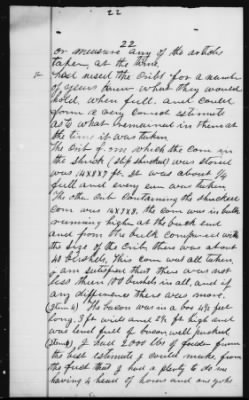 22
22
or measure any of the articles
taken, at the time.
had used the Cribs for a number
of years knew what they would
hold, when full, and could
form a very correct estimate
as to what remained in them at
the time it was taken
The Crib from which the corn in
the shuck (slip shucked) was stored
was 14x8x7 ft. It was about 3/4
full and every ear was taken
The other Crib containing the shucked
corn was 14x7x8. the corn was in bulk
running high at the back end
and from the bulk compared with
the size of the Crib, there was about
bushels. This corn was all taken,
I am satisfied that there was not
less than 100 bushels in all, and if
any difference there was more.
The bacon was in a box 4½ feet
long, 3 ft wide and 2½ ft high and
was level full of bacon, well packed
I had 2000 lbs of fodder from
the best estimate I could make, from
the fact that I had a plenty to do me
having 4 head of horses and one yoke